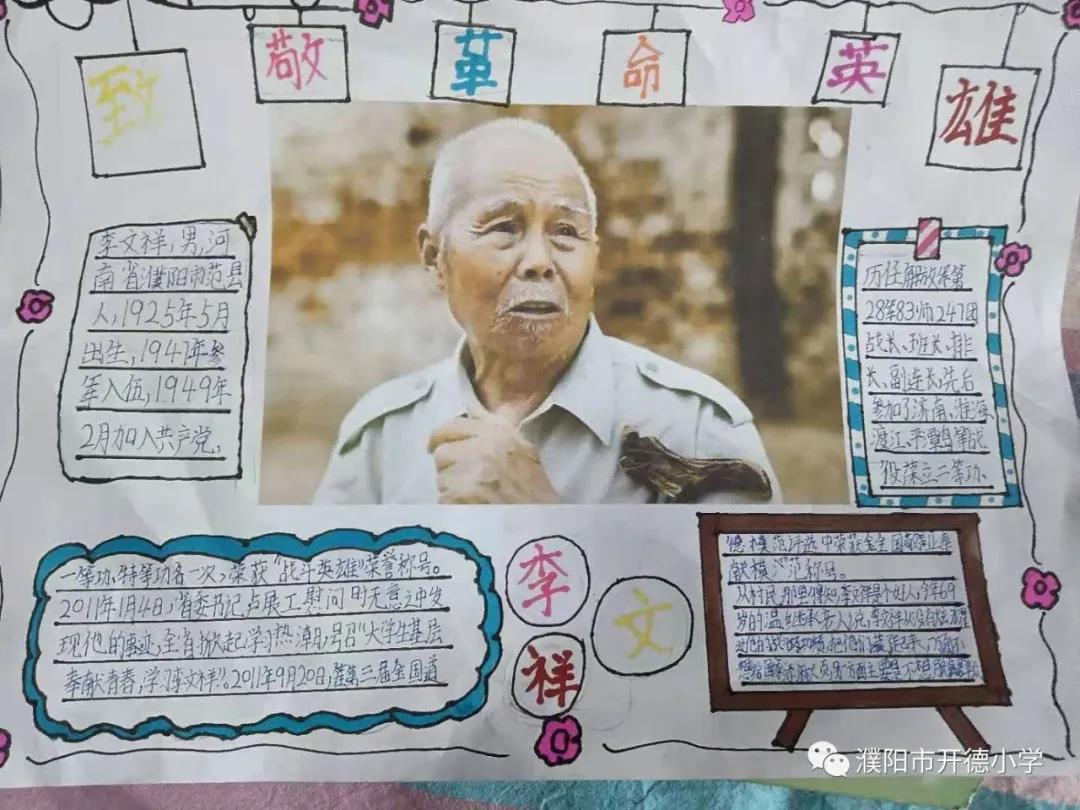 致敬革命英雄
李文祥,男,河
南省濮阳市范县
人,1925年5月
出生,1947年参
军入伍,1949年
2月加入共产党,
历任解放军第
28军83师247团
战长、班长、排
长、副连长,先后
参加了济南、淮海
渡江、平潭岛等战
役荣立二等功、
一等功、特等功各一次,荣获"战斗英雄"荣誉称号。
2011年1月4日,省委书记卢展工慰问时无意之中发
现他的事迹,全省掀起学习热潮,号召"大学生基层
奉献青春,学习李文祥"。2011年9月20日,在第三届全国道
德模范评选中荣获全国敬业奉
献模范称号。
从村民那里得知,李文祥是个好人,今年69
岁的温
李文祥
濮阳市开德小学